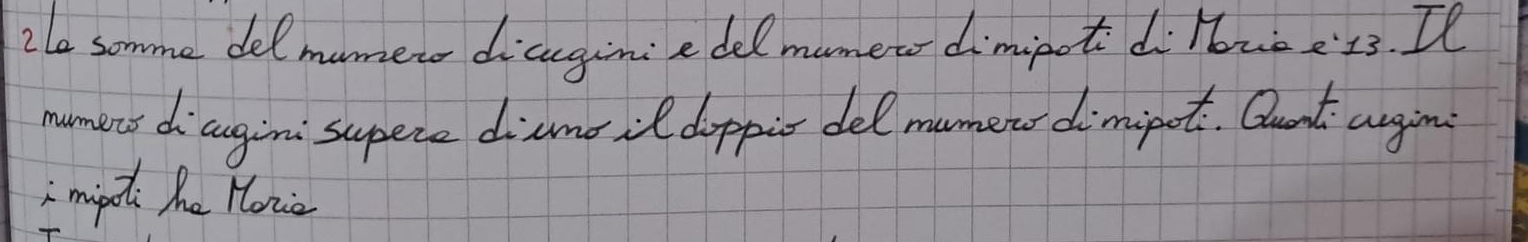 2 La somma del numero di cugini e del numero di nipoti di Maria e' 13. Il
numero di cugini supera di uno il doppio del numero di nipoti. Quanti cugini
i nipoti ha Maria